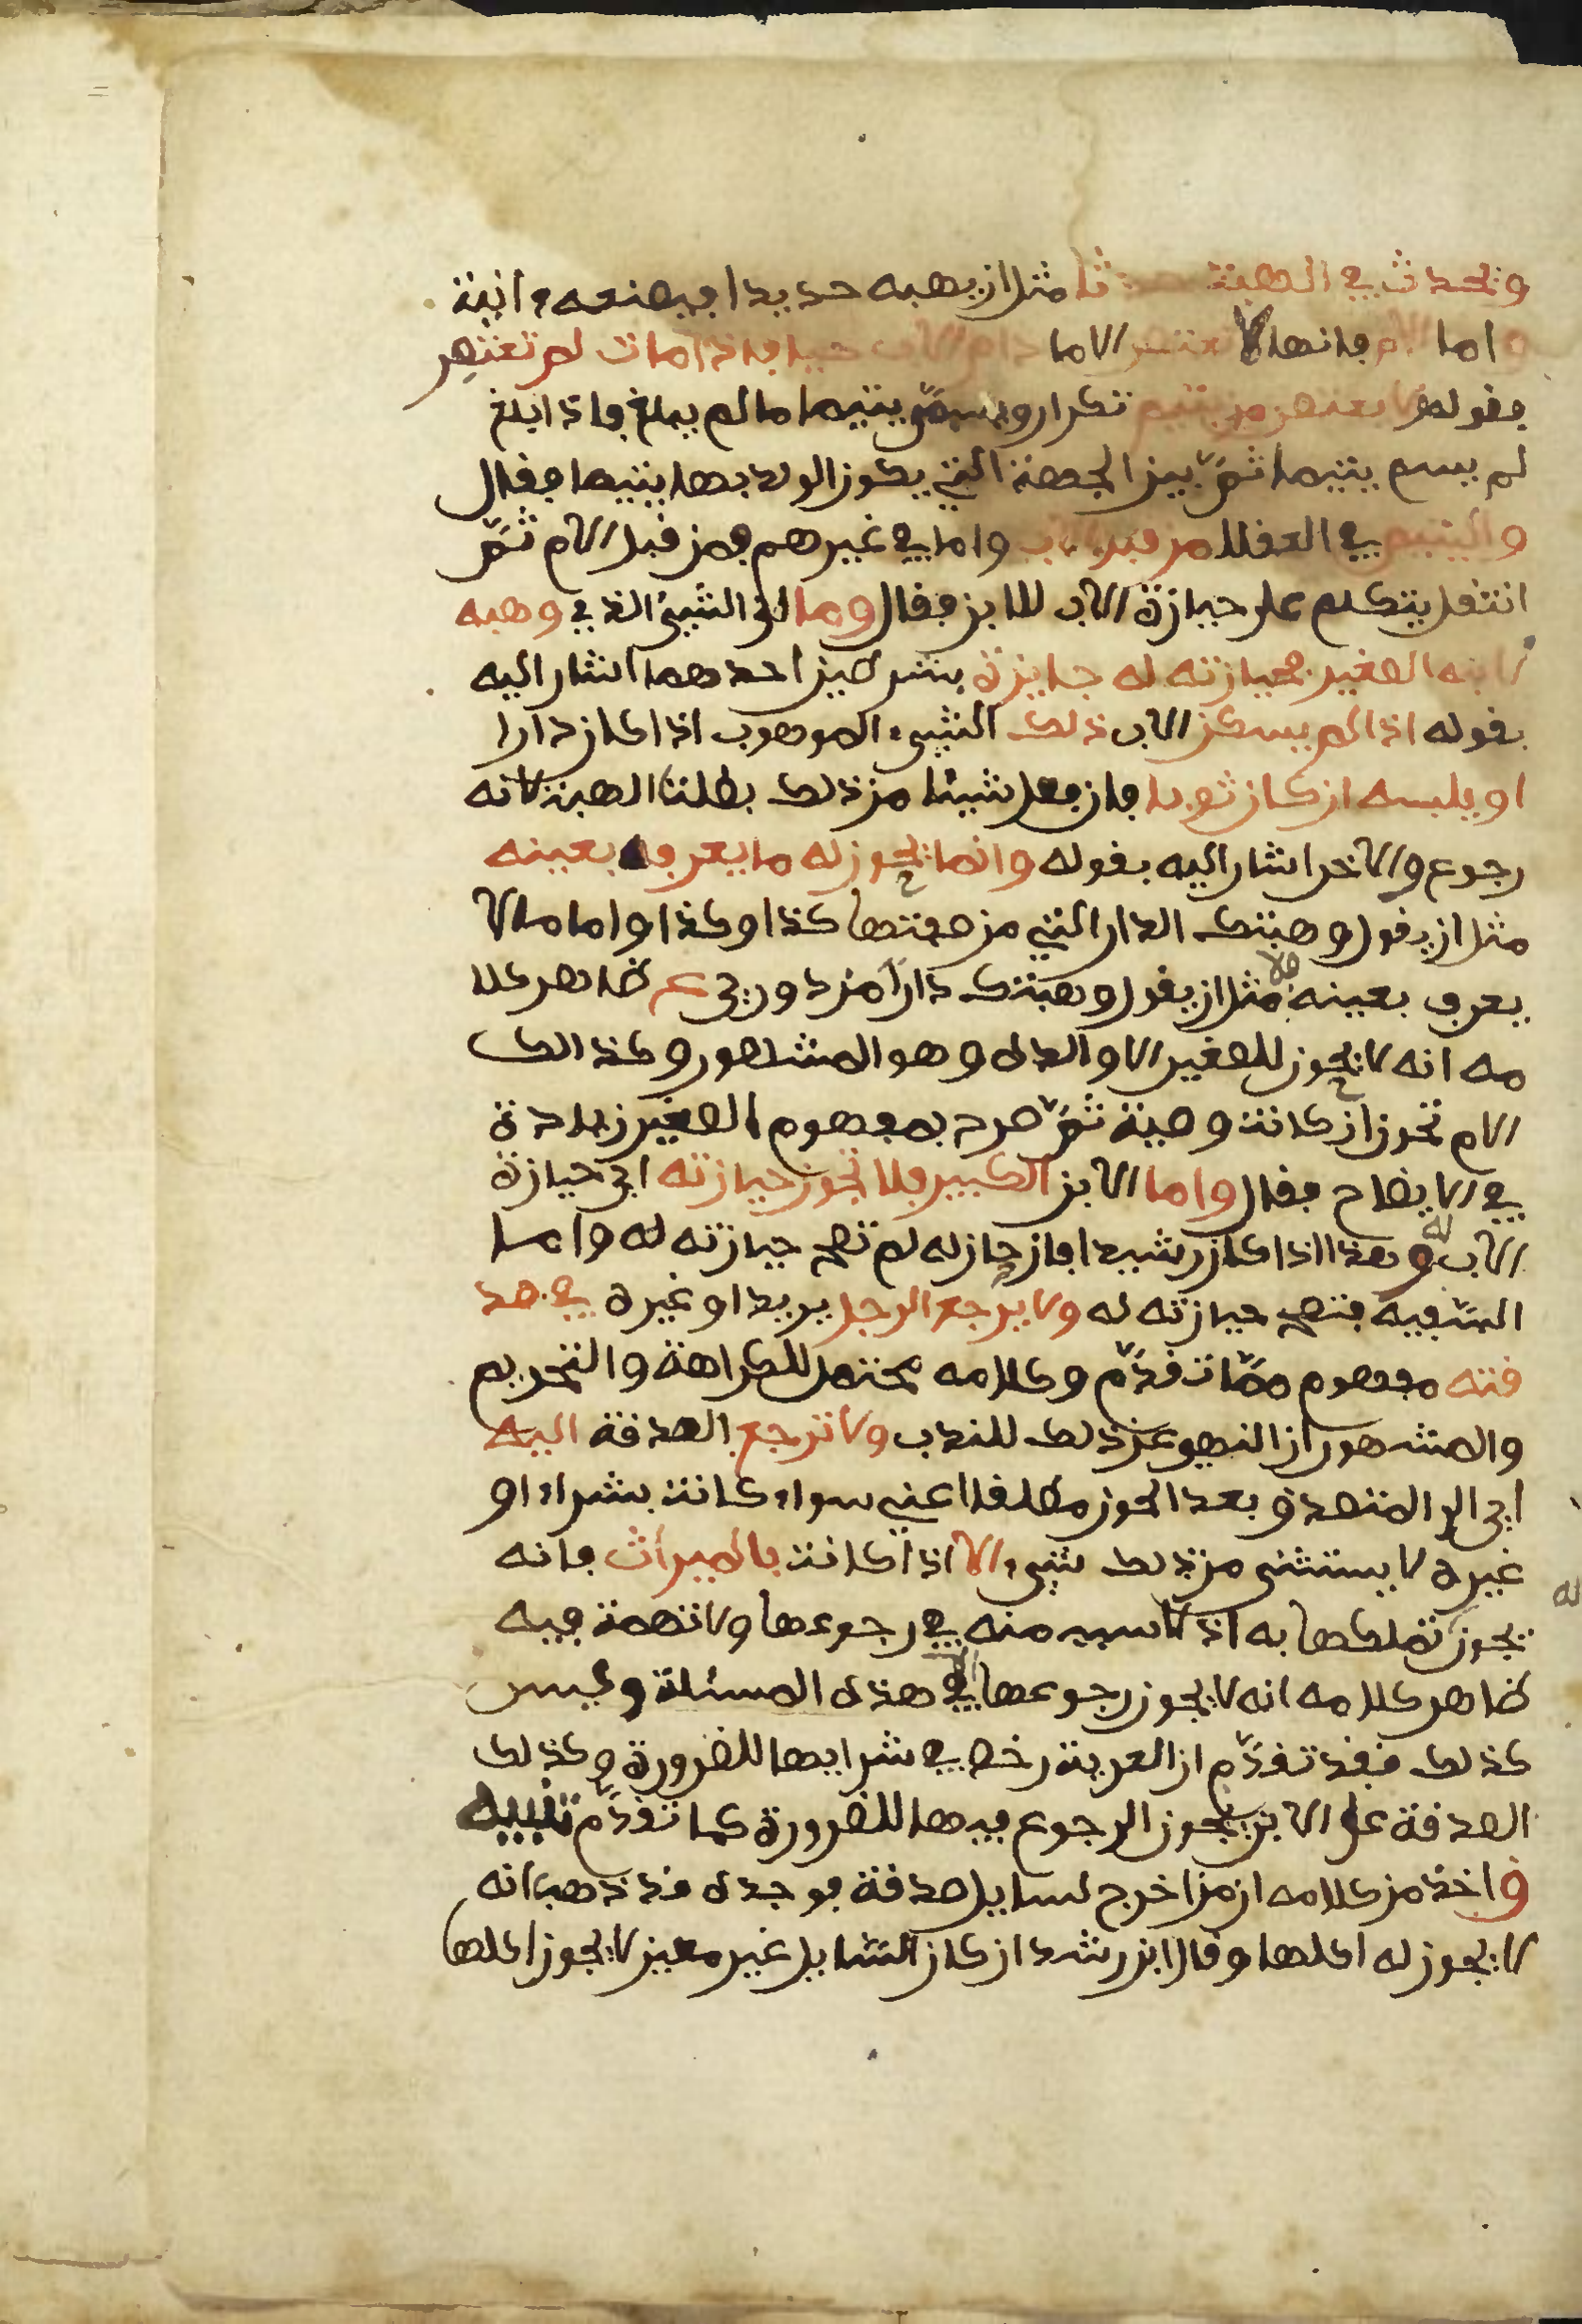 ويحدث في الهبة حدثا مثل ان يهبه حديدا فيصنعه ءانية
واما الام فانها لا تعتصر الا ما دام الاب حيا فاذا مات لم تعتصر
فقوله لا يعتصر من يتيم تكرار ويسمى يتيما ما لم يبلغ فاذا ابلغ
لم يسم يتيما ثم بين الجهة التي يكون الولد بها يتيما فقال
واليتيم في العقلا من قبل الاب واما في غيرهم فمن قبل الام ثم
انتقل يتكلم على حيازة الاب للابن فقال وما اي الشيئ الذي وهبه
لابنه الصغير فحيازته له جايزة بشرطين احدهما اشار اليه
بقوله اذا لم يسكن الاب ذلك الشيء الموهوب اذا كان دارا
او يلبسه ان كان ثوبا فان فعل شيئا من ذلك بطلت الهبة لانه
رجوع والاخر اشار اليه بقوله وانما يحوز له ما يعرف بعينه
مثل ان يقول وهبتك الدار التي من صفتها كذا وكذا واما ما لا
يعرف بعينه فلا مثل ان يقول وهبتك دارا من دوري ظاهر كلا
مه انه لا يحوز للصغير الا والده وهو المشهور وكذالك
الام تحوز ان كانت وصية ثم صرح بمفهوم الصغير زيادة
في الايضاح فقال واما الابن الكبير فلا تجوز حيازته اي حيازة
الاب له وهذا اذا كان رشيدا فان حاز له لم تصح حيازته له واما
السفيه فتصح حيازته له ولا يرجع الرجل يريد او غيره في صد
قته مفهوم مما تقدم وكلامه محتمل للكراهة والتحريم
والمشهور ان النهي عن ذلك للندب ولا ترجع الصدقة اليه
اي الى المتصدق بعد الحوز مطلقا اعني سواء كانت بشراء او
غيره لا يستثنى من ذلك شيء الا اذا كانت بالميراث فانه
يجوز تملكها به اذ لا سبب منه في رجوعها ولا تهمة فيه
ظاهر كلامه انه لا يجوز رجوعها الا في هذه المسئلة وليس
كذلك فقد تقدم ان العرية رخص في شرايها للضرورة وكذلك
الصدقة على الابن يجوز الرجوع فيها للضرورة كما تقدم تنبيه
واخذ من كلامه ان من اخرج لسايل صدقة فوجده قد ذهب انه
لا يجوز له اكلها وقال ابن رشد ان كان السايل غير معين لا يجوز اكلها